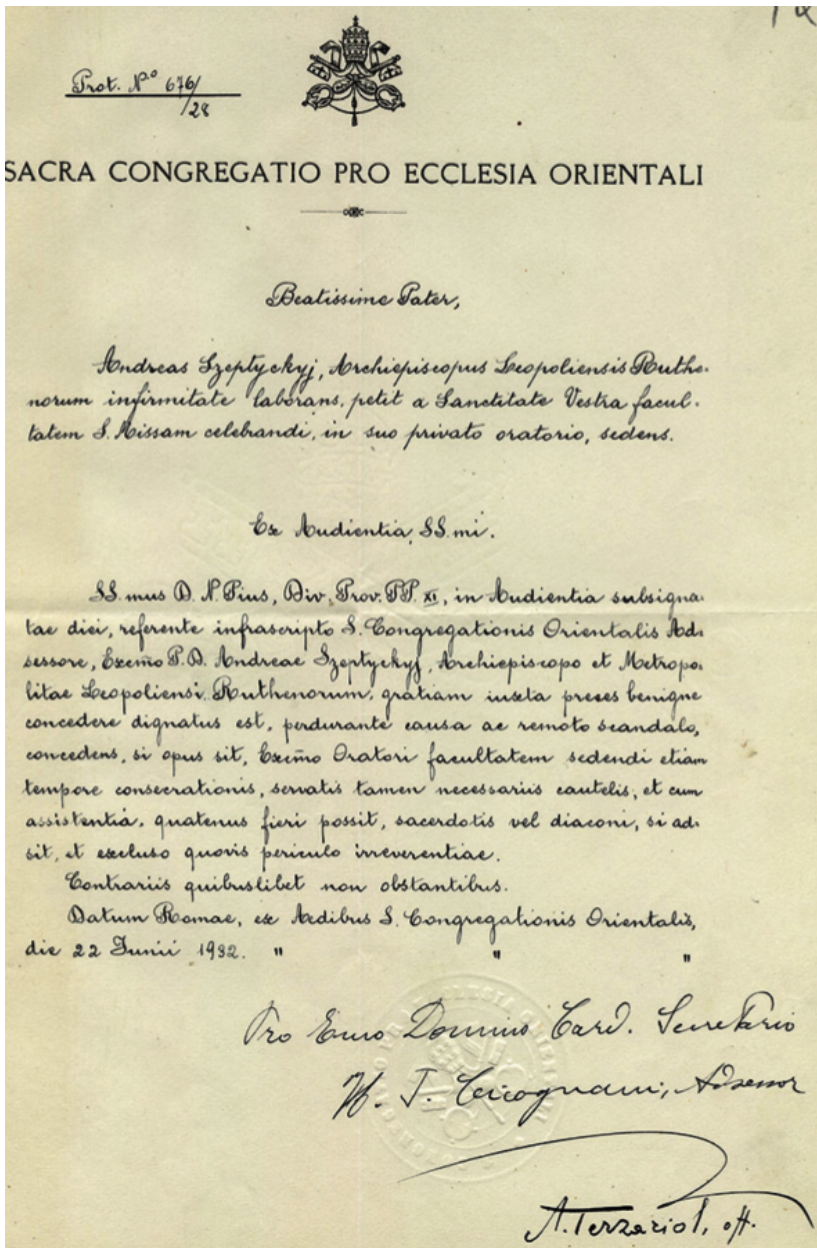 Prot. Nº 676/28
SACRA CONGREGATIO PRO ECCLESIA ORIENTALI
Beatissime Pater,
Andreas Szeptyckyj, Archiepiscopus Leopoliensis Ruthe-
norum infirmitate laborans, petit a Sanctitate Vestra facul-
tatem S. Missam celebrandi, in suo privato oratorio, sedens.
Ex Audientia, SS.mi.
SS.mus D. N. Pius, Div. Prov. PP. XI, in Audientia subsigna-
tae diei, referente infrascripto S. Congregationis Orientalis Ad-
sessore, Excm̃o P. D. Andreae Szeptyckyj, Archiepiscopo et Metropo-
litae Leopoliensi Ruthenorum, gratiam iuxta preces benigne
concedere dignatus est, perdurante causa ac remoto scandalo,
concedens, si opus sit, Excm̃o Oratori facultatem sedendi etiam
tempore consecrationis, servatis tamen necessariis cautelis, et cum
assistentia, quatenus fieri possit, sacerdotis vel diaconi, si ad-
sit, et excluso quovis periculo irreverentiae.
Contrariis quibuslibet non obstantibus.
Datum Romae, ex Aedibus S. Congregationis Orientalis,
die 22 Junii 1932. " " "
Pro Emo Domino Card. Secretario
H. J. Cicognani, Adsessor
A. Terzariol, off.